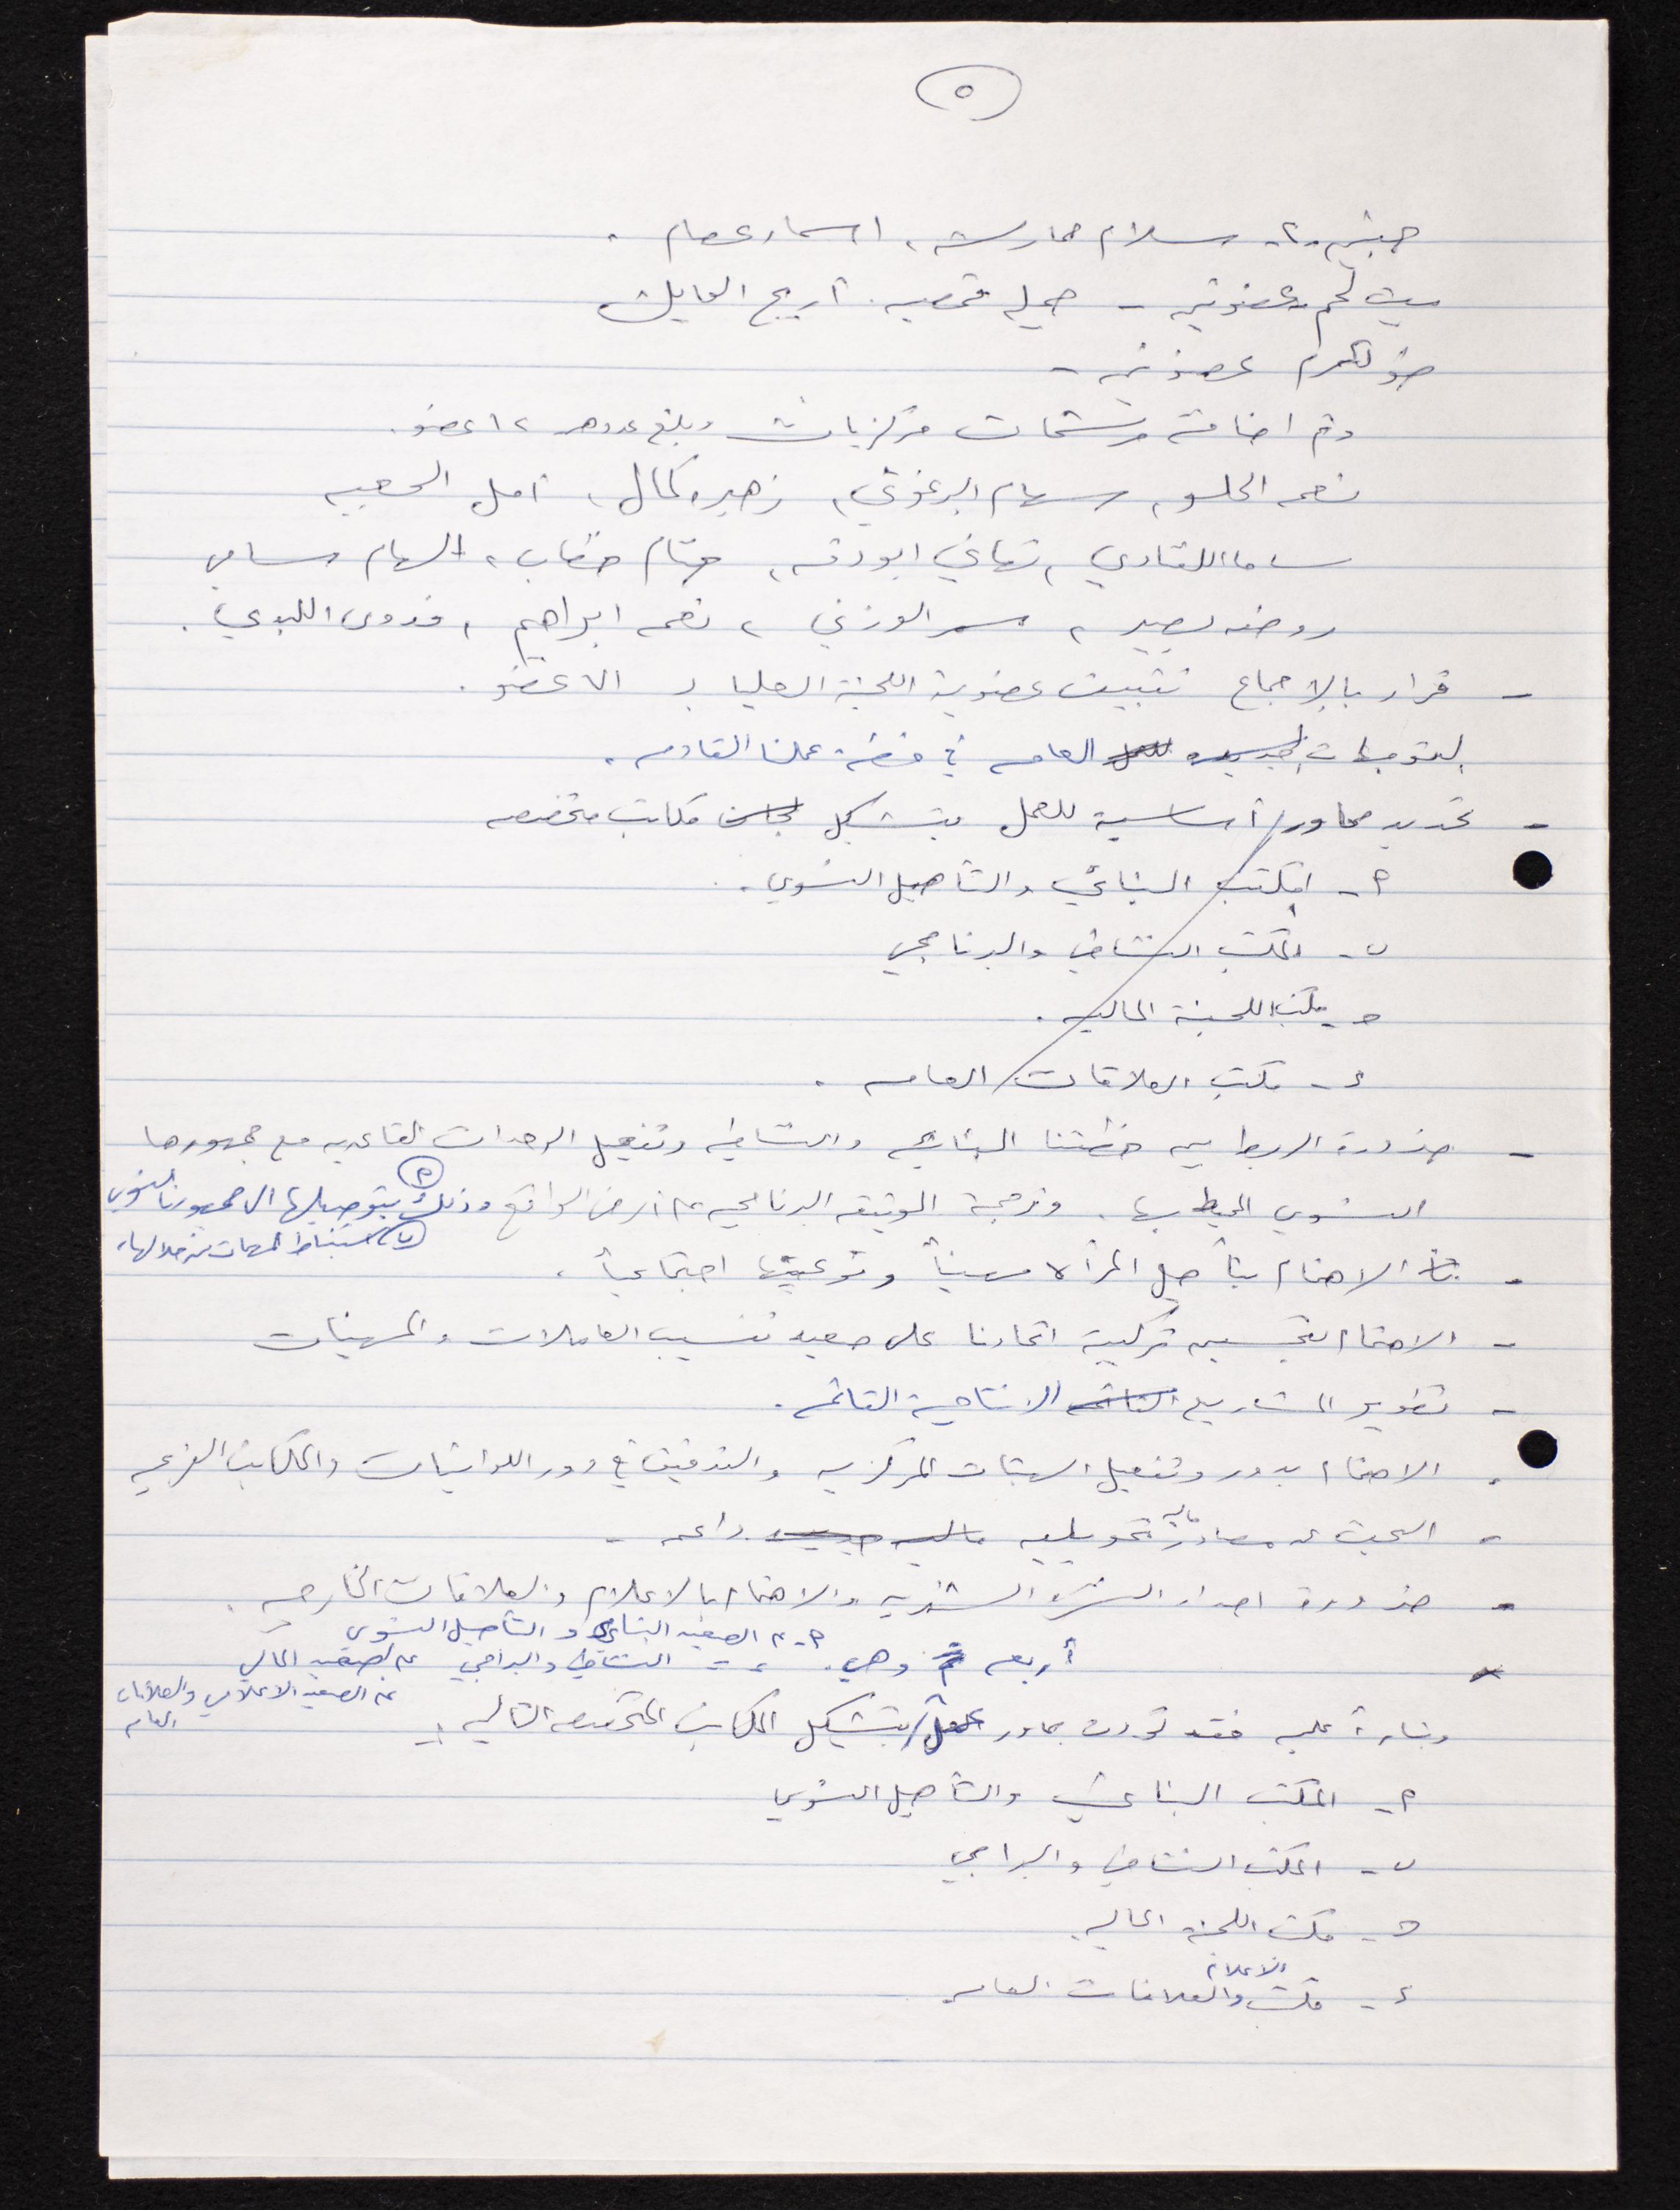 ٥
جنين -٢- سلام حمارشه، اسمار عصام.
بيت لحم عضوتين - جميله قمصيه. أريج العايك
طولكرم عضوتين -
وتم اضافة مرشحات مركزيات وبلغ عددهم ١٢ عضو.
نعمه الحلو، سهام البرغوثي، زهيره كمال، أمل الجعبه
ساما اللقادي، تهاني ابو دقه، ختام خطاب، الهام سامي
روضه بصير، سمر الوزني، نعمه ابراهيم، فدوى اللبدي.
- قرار بالاجماع تثبيت عضوية اللجنة العليا بـ الـ عضو.
التوجهات الجديده للعمل العامه في خطة عملنا القادمه.
- تحديد محاور أساسية للعمل بتشكيل لجان مكاتب متخصصه
أ- المكتب البنائي والتأهيل النسوي.
ب- المكتب النشاطي والبرنامجي
ج- مكتب اللجنة الماليه.
د- مكتب العلاقات العامه.
- ضرورة الربط بين خطتنا البنائيه والنشاطيه وتفعيل الوحدات القاعديه مع جمهورها
النسوي المحيط بها. وترجمة الوثيقه البرنامجيه على أرض الواقع وذلك أ بتوصيلها الى جمهورنا النسوي
ب استنباط المهمات من خلالها،
- الاهتمام بتأهيل المرأه مهنياً وتوعيتها اجتماعياً،
- الاهتمام بتحسين تركيبة اتحادنا على صعيد تنسيب العاملات والمهنيات
- تطوير المشاريع القائمه الانتاجية القائمه.
- الاهتمام بدور وتفعيل الهيئات المركزيه والتدقيق في دور اللوائيات والمكاتب الفرعيه
- البحث عن مصادر ماليه تمويليه ماليه جديده داعمه -
- ضرورة اصدار النشره الشهريه والاهتمام بالاعلام والعلاقات الخارجيه.
أ- الصعيد البنائي والتأهيل النسوي
أربعه وهي. ٢- النشاطي والبرامجي ٣- الصعيد المالي
٤- الصعيد الاعلامي والعلاقات العامه
وبناءاً عليه فقد تحددت محاور العمل بتشكيل المكاتب المتخصصه التاليه:
أ- المكتب البنائي والتأهيل النسوي
ب- المكتب النشاطي والبرامجي
ج- مكتب اللجنة الماليه
د- مكتب الاعلام والعلاقات العامه